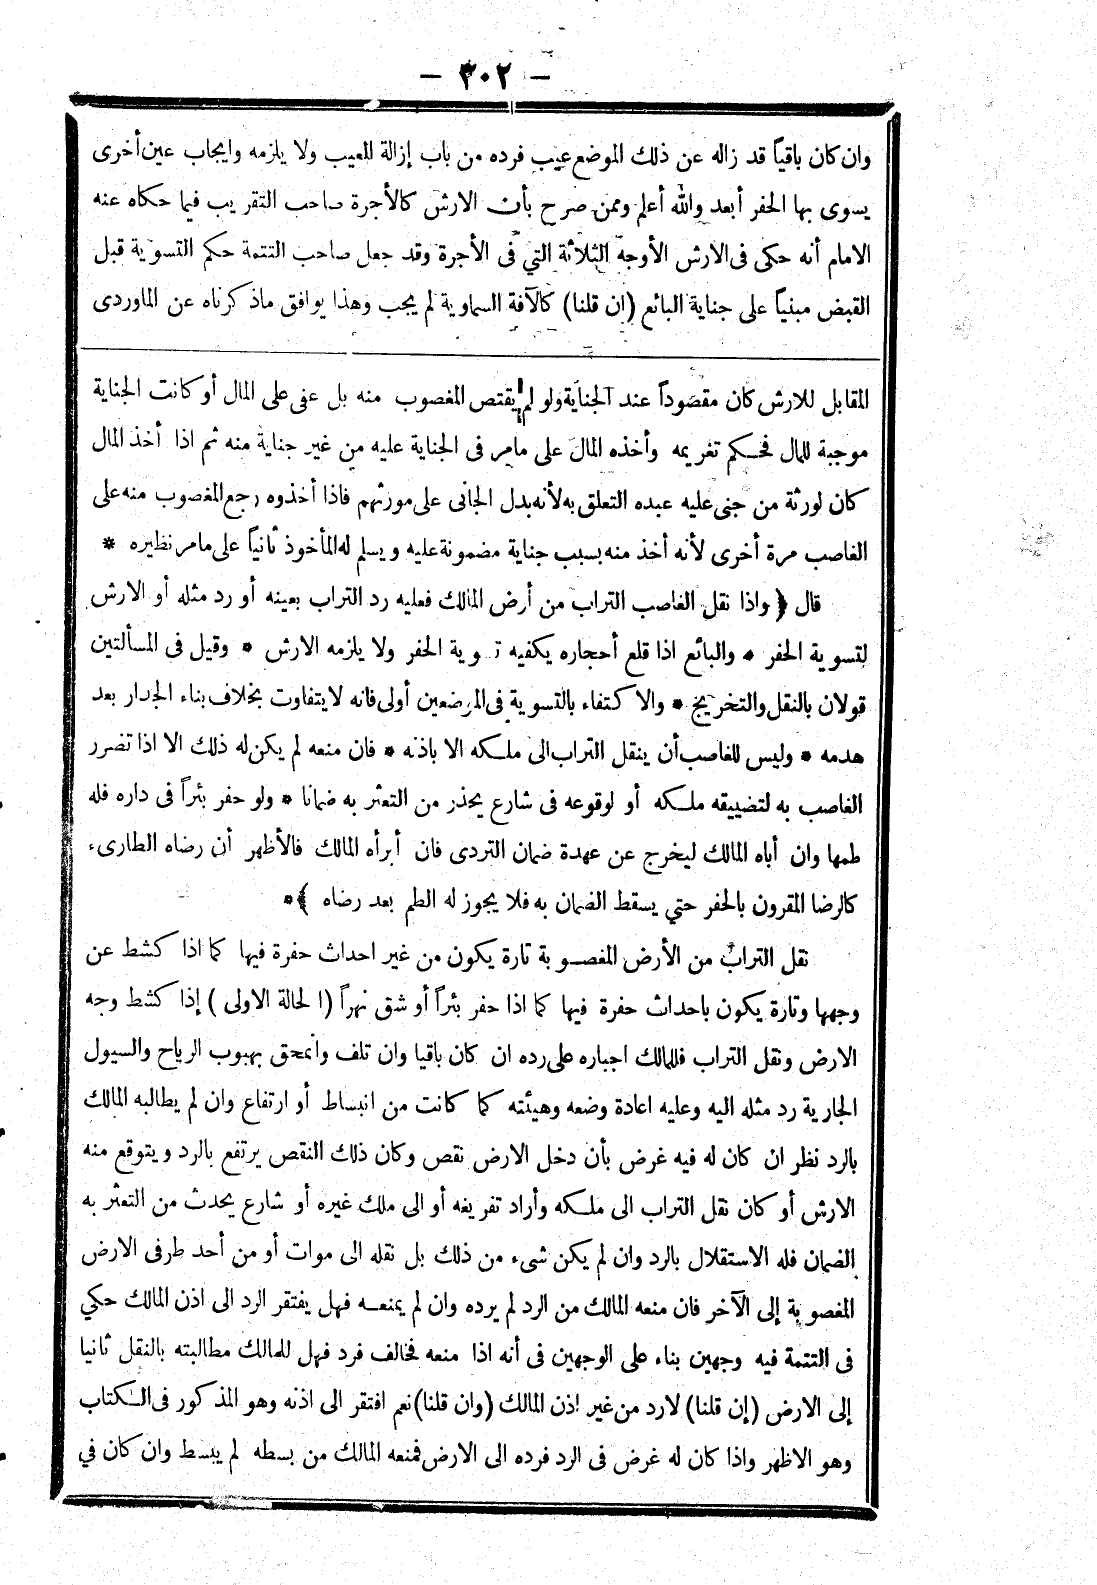 — ٣٠٢ —
وان كان باقياً قد زاله عن ذلك الموضع عيب فرده من باب إزالة للعيب ولا يلزمه وايجاب عين أخرى
يسوى بها الحفر أبعد والله أعلم وممن صرح بأن الارش كالأجرة صاحب التقريب فيما حكاه عنه
الامام أنه حكى فى الارش الأوجه الثلاثة التي فى الأجرة وقد جعل صاحب التتمة حكم التسوية قبل
القبض مبنياً على جناية البائع (ان قلنا) كالآفة السماوية لم يجب وهذا يوافق ماذكرناه عن الماوردى
المقابل للارش كان مقصوداً عند الجناية ولو لم يقتص المغصوب منه بل عفى على المال أو كانت الجناية
موجبة للمال فحكم تغريمه وأخذه المال على مامر فى الجناية عليه من غير جناية منه ثم اذا أخذ المال
كان لورثة من جنى عليه عبده التعلق به لأنه بدل الجانى على مورثهم فاذا أخذوه رجع المغصوب منه على
الغاصب مرة أخرى لأنه أخذ منه بسبب جناية مضمونة عليه ويسلم له المأخوذ ثانياً على مامر نظيره *
قال ﴿ واذا نقل الغاصب التراب من أرض المالك فعليه رد التراب بعينه أو رد مثله أو الارش
لتسوية الحفر * والبائع اذا قلع أحجاره يكفيه تسوية الحفر ولا يلزمه الارش * وقيل فى المسألتين
قولان بالنقل والتخريج * والاكتفاء بالتسوية فى الموضعين أولى فانه لايتفاوت بخلاف بناء الجدار بعد
هدمه * وليس للغاصب أن ينقل التراب الى ملكه الا باذنه * فان منعه لم يكن له ذلك الا اذا تضرر
الغاصب به لتضييقه ملكه أو لوقوعه فى شارع يحذر من التعثر به ضمانا * ولو حفر بئراً فى داره فله
طمها وان أباه المالك ليخرج عن عهدة ضمان التردى فان أبرأه المالك فالأظهر أن رضاه الطارىء
كالرضا المقرون بالحفر حتي يسقط الضمان به فلا يجوز له الطم بعد رضاه ﴾ *
نقل التراب من الأرض المغصوبة تارة يكون من غير احداث حفرة فيها كما اذا كشط عن
وجهها وتارة يكون باحداث حفرة فيها كما اذا حفر بئراً أو شق نهراً (الحالة الاولى) إذا كشط وجه
الارض ونقل التراب فللمالك اجباره على رده ان كان باقيا وان تلف وانمحق بهبوب الرياح والسيول
الجارية رد مثله اليه وعليه اعادة وضعه وهيئته كما كانت من انبساط أو ارتفاع وان لم يطالبه المالك
بالرد نظر ان كان له فيه غرض بأن دخل الارض نقص وكان ذلك النقص يرتفع بالرد ويتوقع منه
الارش أو كان نقل التراب الى ملكه وأراد تفريغه أو الى ملك غيره أو شارع يحدث من التعثر به
الضمان فله الاستقلال بالرد وان لم يكن شىء من ذلك بل نقله الى موات أو من أحد طرفى الارض
المغصوبة إلى الآخر فان منعه المالك من الرد لم يرده وان لم يمنعه فهل يفتقر الرد الى اذن المالك حكي
فى التتمة فيه وجهين بناء على الوجهين فى أنه اذا منعه فخالف فرد فهل للمالك مطالبته بالنقل ثانيا
إلى الارض (إن قلنا) لارد من غير اذن المالك (وان قلنا) نعم افتقر الى اذنه وهو المذكور فى الكتاب
وهو الاظهر واذا كان له غرض فى الرد فرده الى الارض فمنعه المالك من بسطه لم يبسط وان كان في